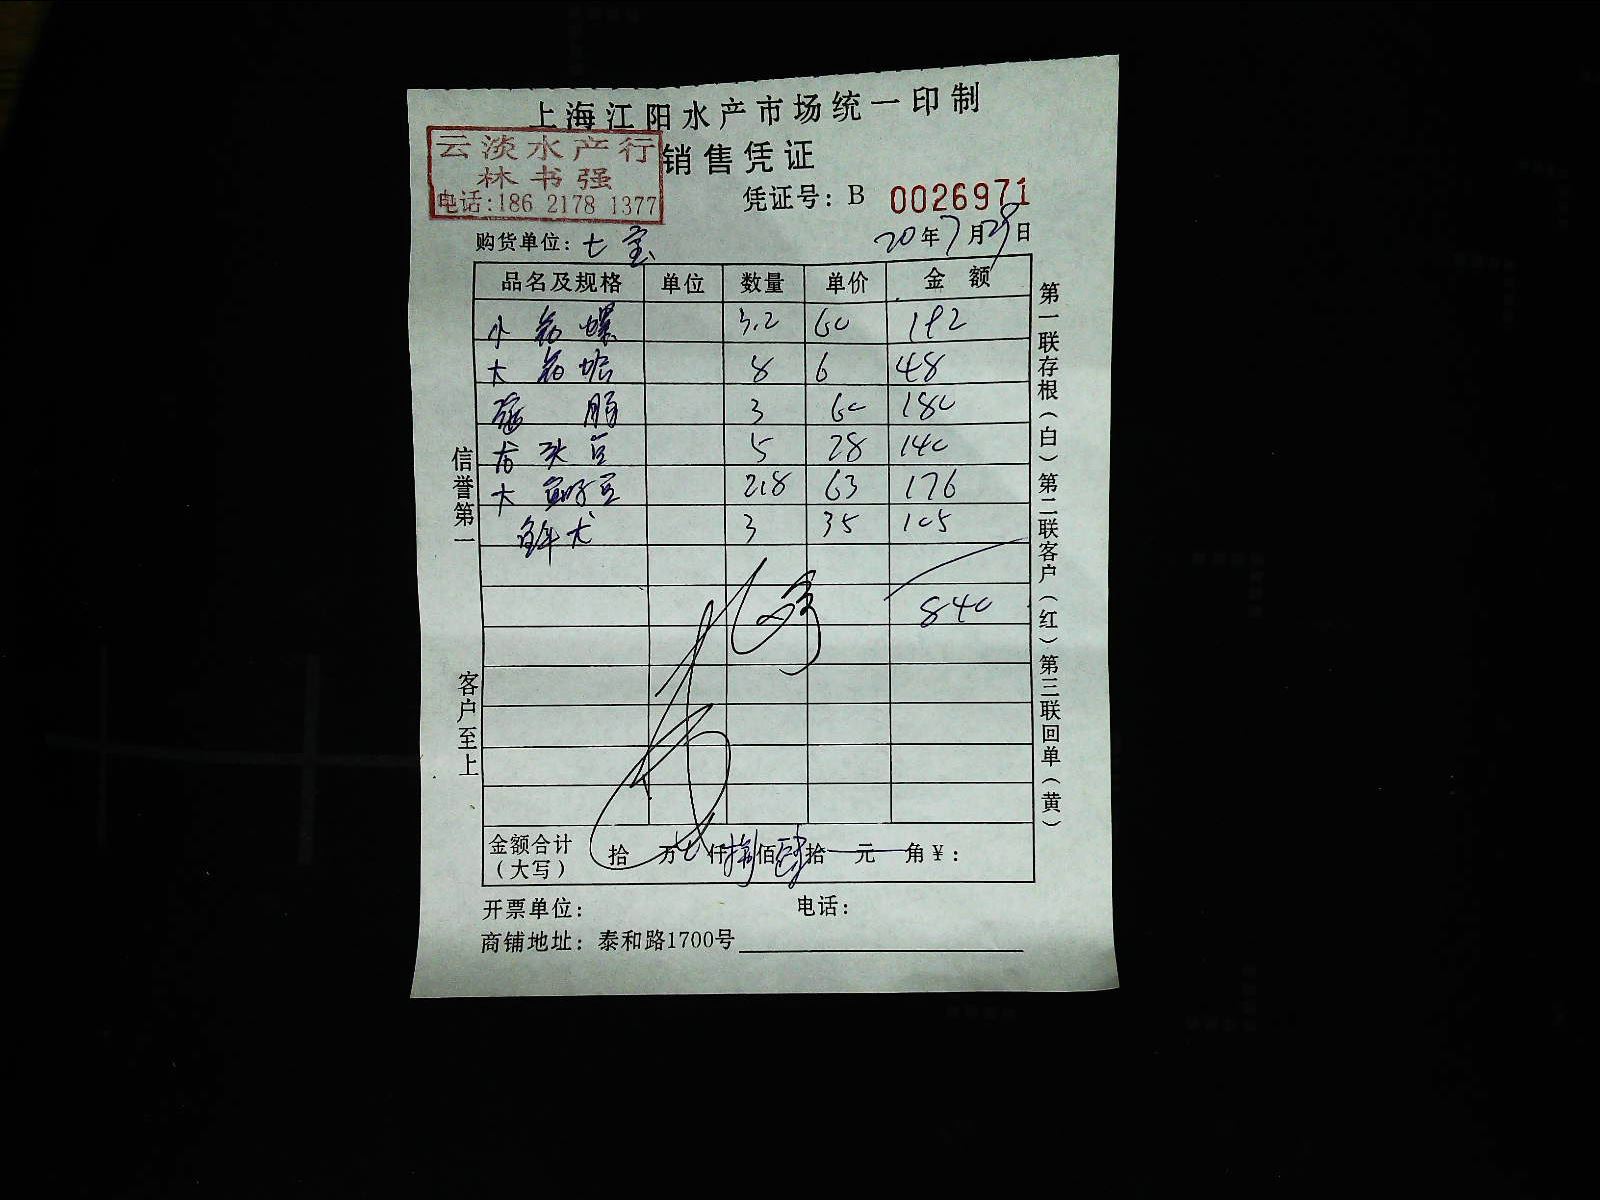 上海江阳水产市场统一印制
云淡水产行
林书强
电话:186 2178 1377
销售凭证
凭证号: B 0026971
购货单位: 七宝
20年7月29日
品名及规格 单位 数量 单价 金额
小 螺 3.2 60 192
大 8 6 48
3 60 180
龙头豆 5 28 140
大 豆 2.8 63 176
3 35 105
840
金额合计（大写） 拾 万 仟捌佰肆拾 元 角￥:
开票单位: 电话:
商铺地址: 泰和路1700号
信誉第一 客户至上
第一联存根（白）第二联客户（红）第三联回单（黄）